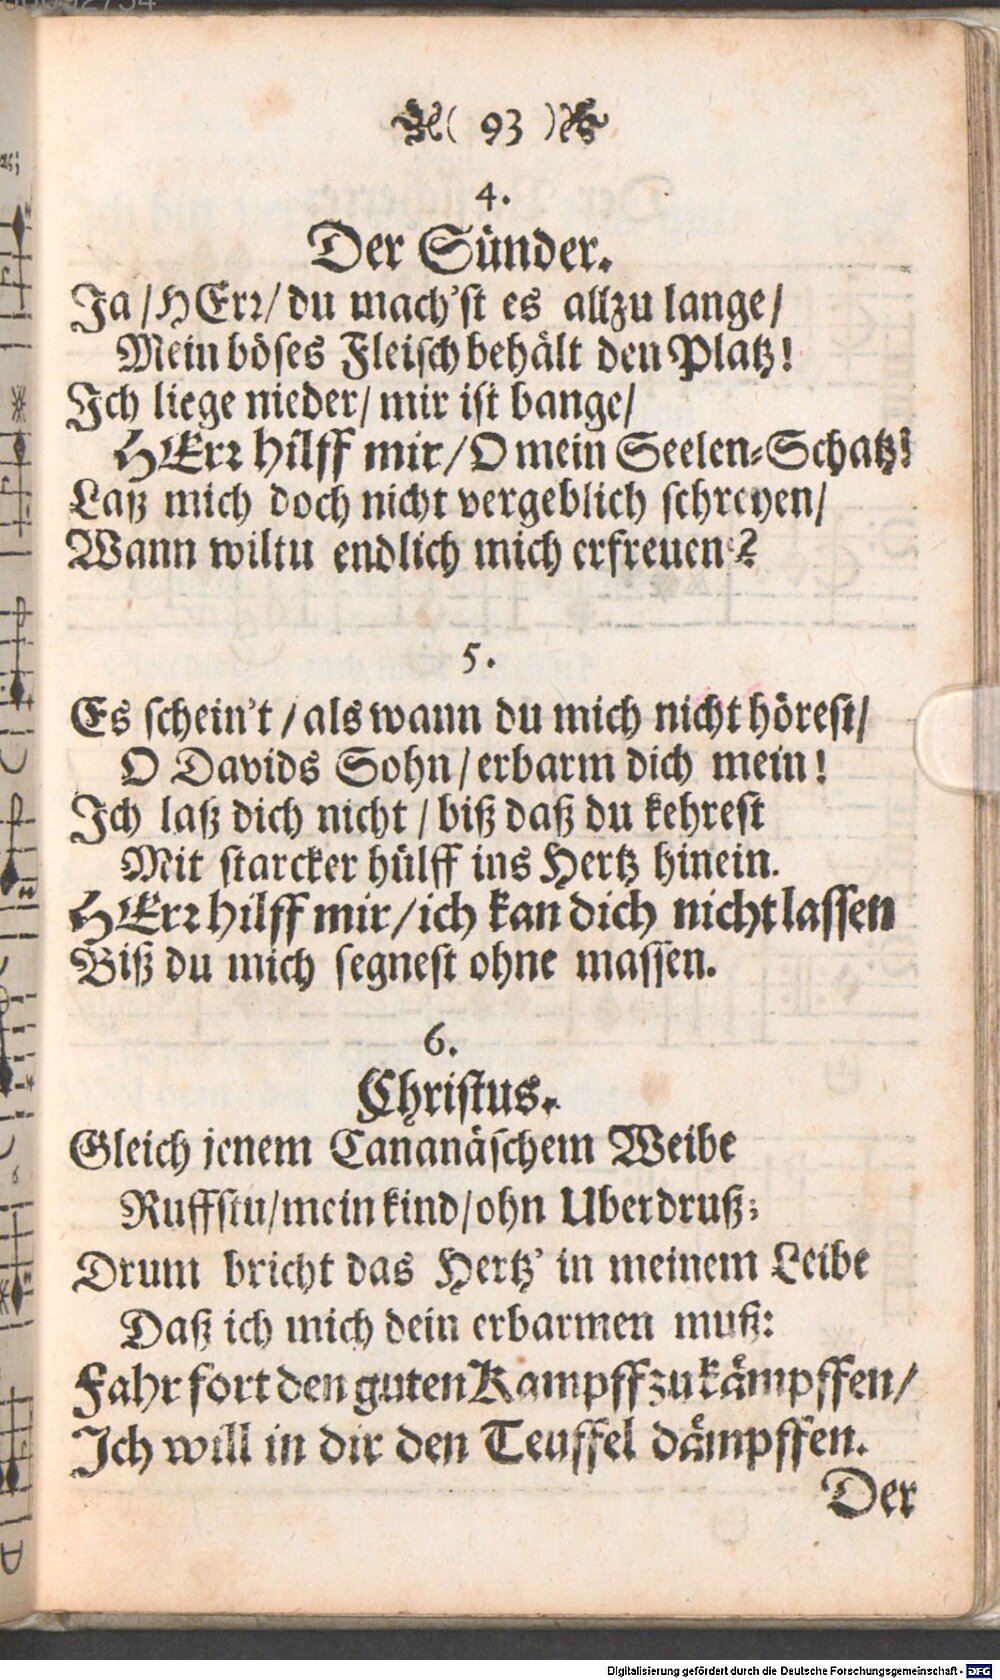 ( 93 )
4.
Der Sünder.
Ja / HErr / du mach'st es allzu lange /
Mein böses Fleisch behält den Platz!
Ich liege nieder / mir ist bange /
HErr hilff mir / O mein Seelen-Schatz!
Laß mich doch nicht vergeblich schreyen /
Wann wiltu endlich mich erfreuen?
5.
Es schein't / als wann du mich nicht hörest /
O Davids Sohn / erbarm dich mein!
Ich laß dich nicht / biß daß du kehrest
Mit starcker hülff ins Hertz hinein.
HErr hilff mir / ich kan dich nicht lassen
Biß du mich segnest ohne massen.
6.
Christus.
Gleich jenem Cananäschem Weibe
Ruffstu / mein kind / ohn Uberdruß;
Drum bricht das Hertz' in meinem Leibe
Daß ich mich dein erbarmen muß:
Fahr fort den guten Kampff zu kämpffen /
Ich will in dir den Teuffel dämpffen.
Der
Digitalisierung gefördert durch die Deutsche Forschungsgemeinschaft - DFG